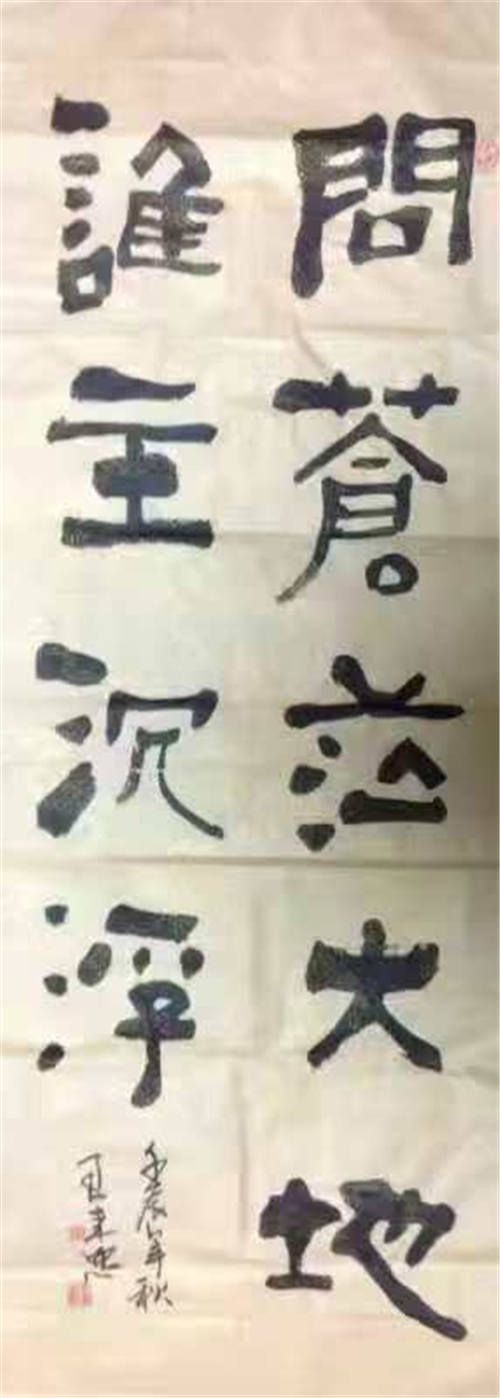 問蒼茫大地
誰主沉浮
壬辰年秋